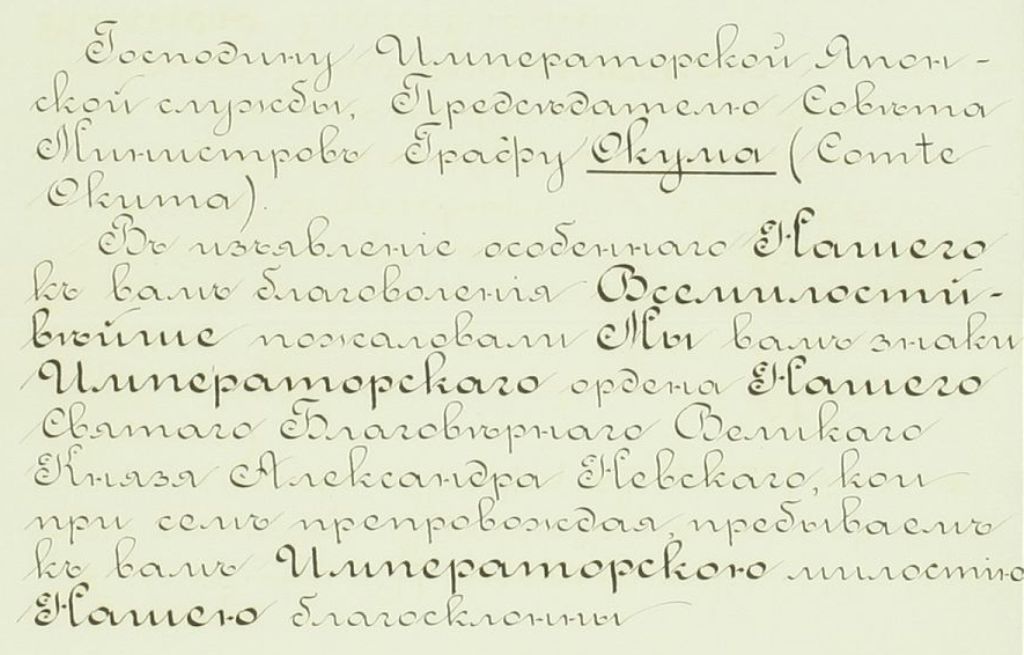 Господину Императорской Япон-
ской службы, Предсѣдателю Совѣта
Министровъ Графу Окума (Comte
Okuma).
Въ изъявленіе особеннаго Нашего
къ вамъ благоволенія Всемилостй-
вѣйше пожаловали Мы вамъ знаки
Императорскаго ордена Нашего
Святаго Благовѣрнаго Великаго
Князя Александра Невскаго, кои
при семъ препровождая, пребываемъ
къ вамъ Императорскою милостію
Нашею благосклонны